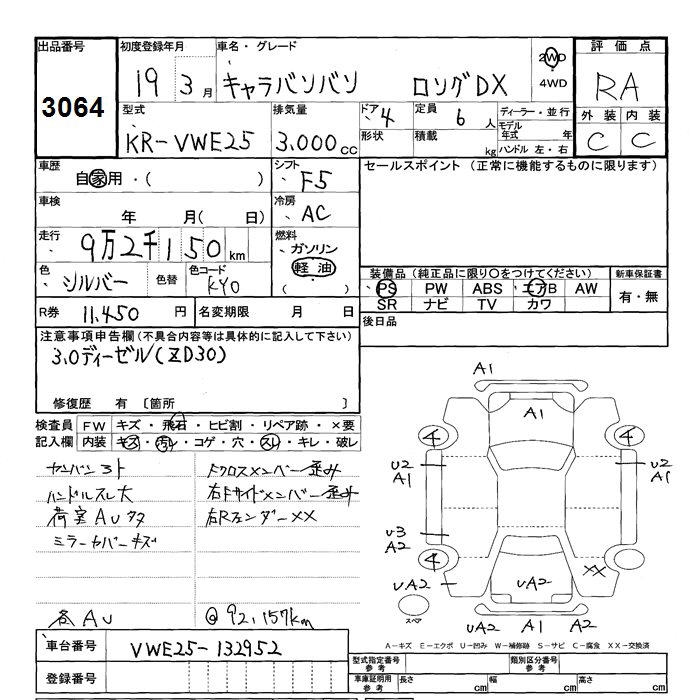 出品番号
3064
初度登録年月
19 3 月
車名・グレード
キャラバンバン ロングDX
2WD
4WD
評価点
RA
外装 内装
C C
型式
KR-VWE25
排気量
3.000 cc
ドア 4
形状
定員 6 人
積載 kg
ディーラー・並行
モデル年式 年
ハンドル 左・右
車歴
自家用・( )
シフト F5
セールスポイント (正常に機能するものに限ります)
車検
年 月( 日)
冷房 AC
走行
9万2千150km
燃料
ガソリン
軽油
( )
色 シルバー
色替
色コード KY0
装備品 (純正品に限り○をつけてください)
新車保証書
PS PW ABS エアB AW
SR ナビ TV カワ
有・無
R券 11.450 円
名変期限 月 日
後日品
注意事項申告欄(不具合内容等は具体的に記入して下さい)
3.0ディーゼル(ZD30)
修復歴 有 〔箇所 〕
検査員記入欄
FW キズ・飛石・ヒビ割・リペア跡・×要
内装 キズ・汚レ・コゲ・穴・スレ・キレ・破レ
ハンドルスレ大
荷室AUタタ
ミラーカバーキズ
Fクロスメンバー歪み
右Fサイドメンバー歪み
右Rフェンダー××
各AU
@92,157km
車台番号 VWE25-132952
登録番号
A1
A1
4
4
U2
A1
U2
A1
U3
A2
4
UA2
UA2
××
スペア
UA2 A1 A2
A-キズ E-エクボ U-凹み W-補修跡 S-サビ C-腐食 XX-交換済
型式指定番号 参考
類別区分番号 参考
車庫証明用 参考
長さ cm 幅 cm 高さ cm